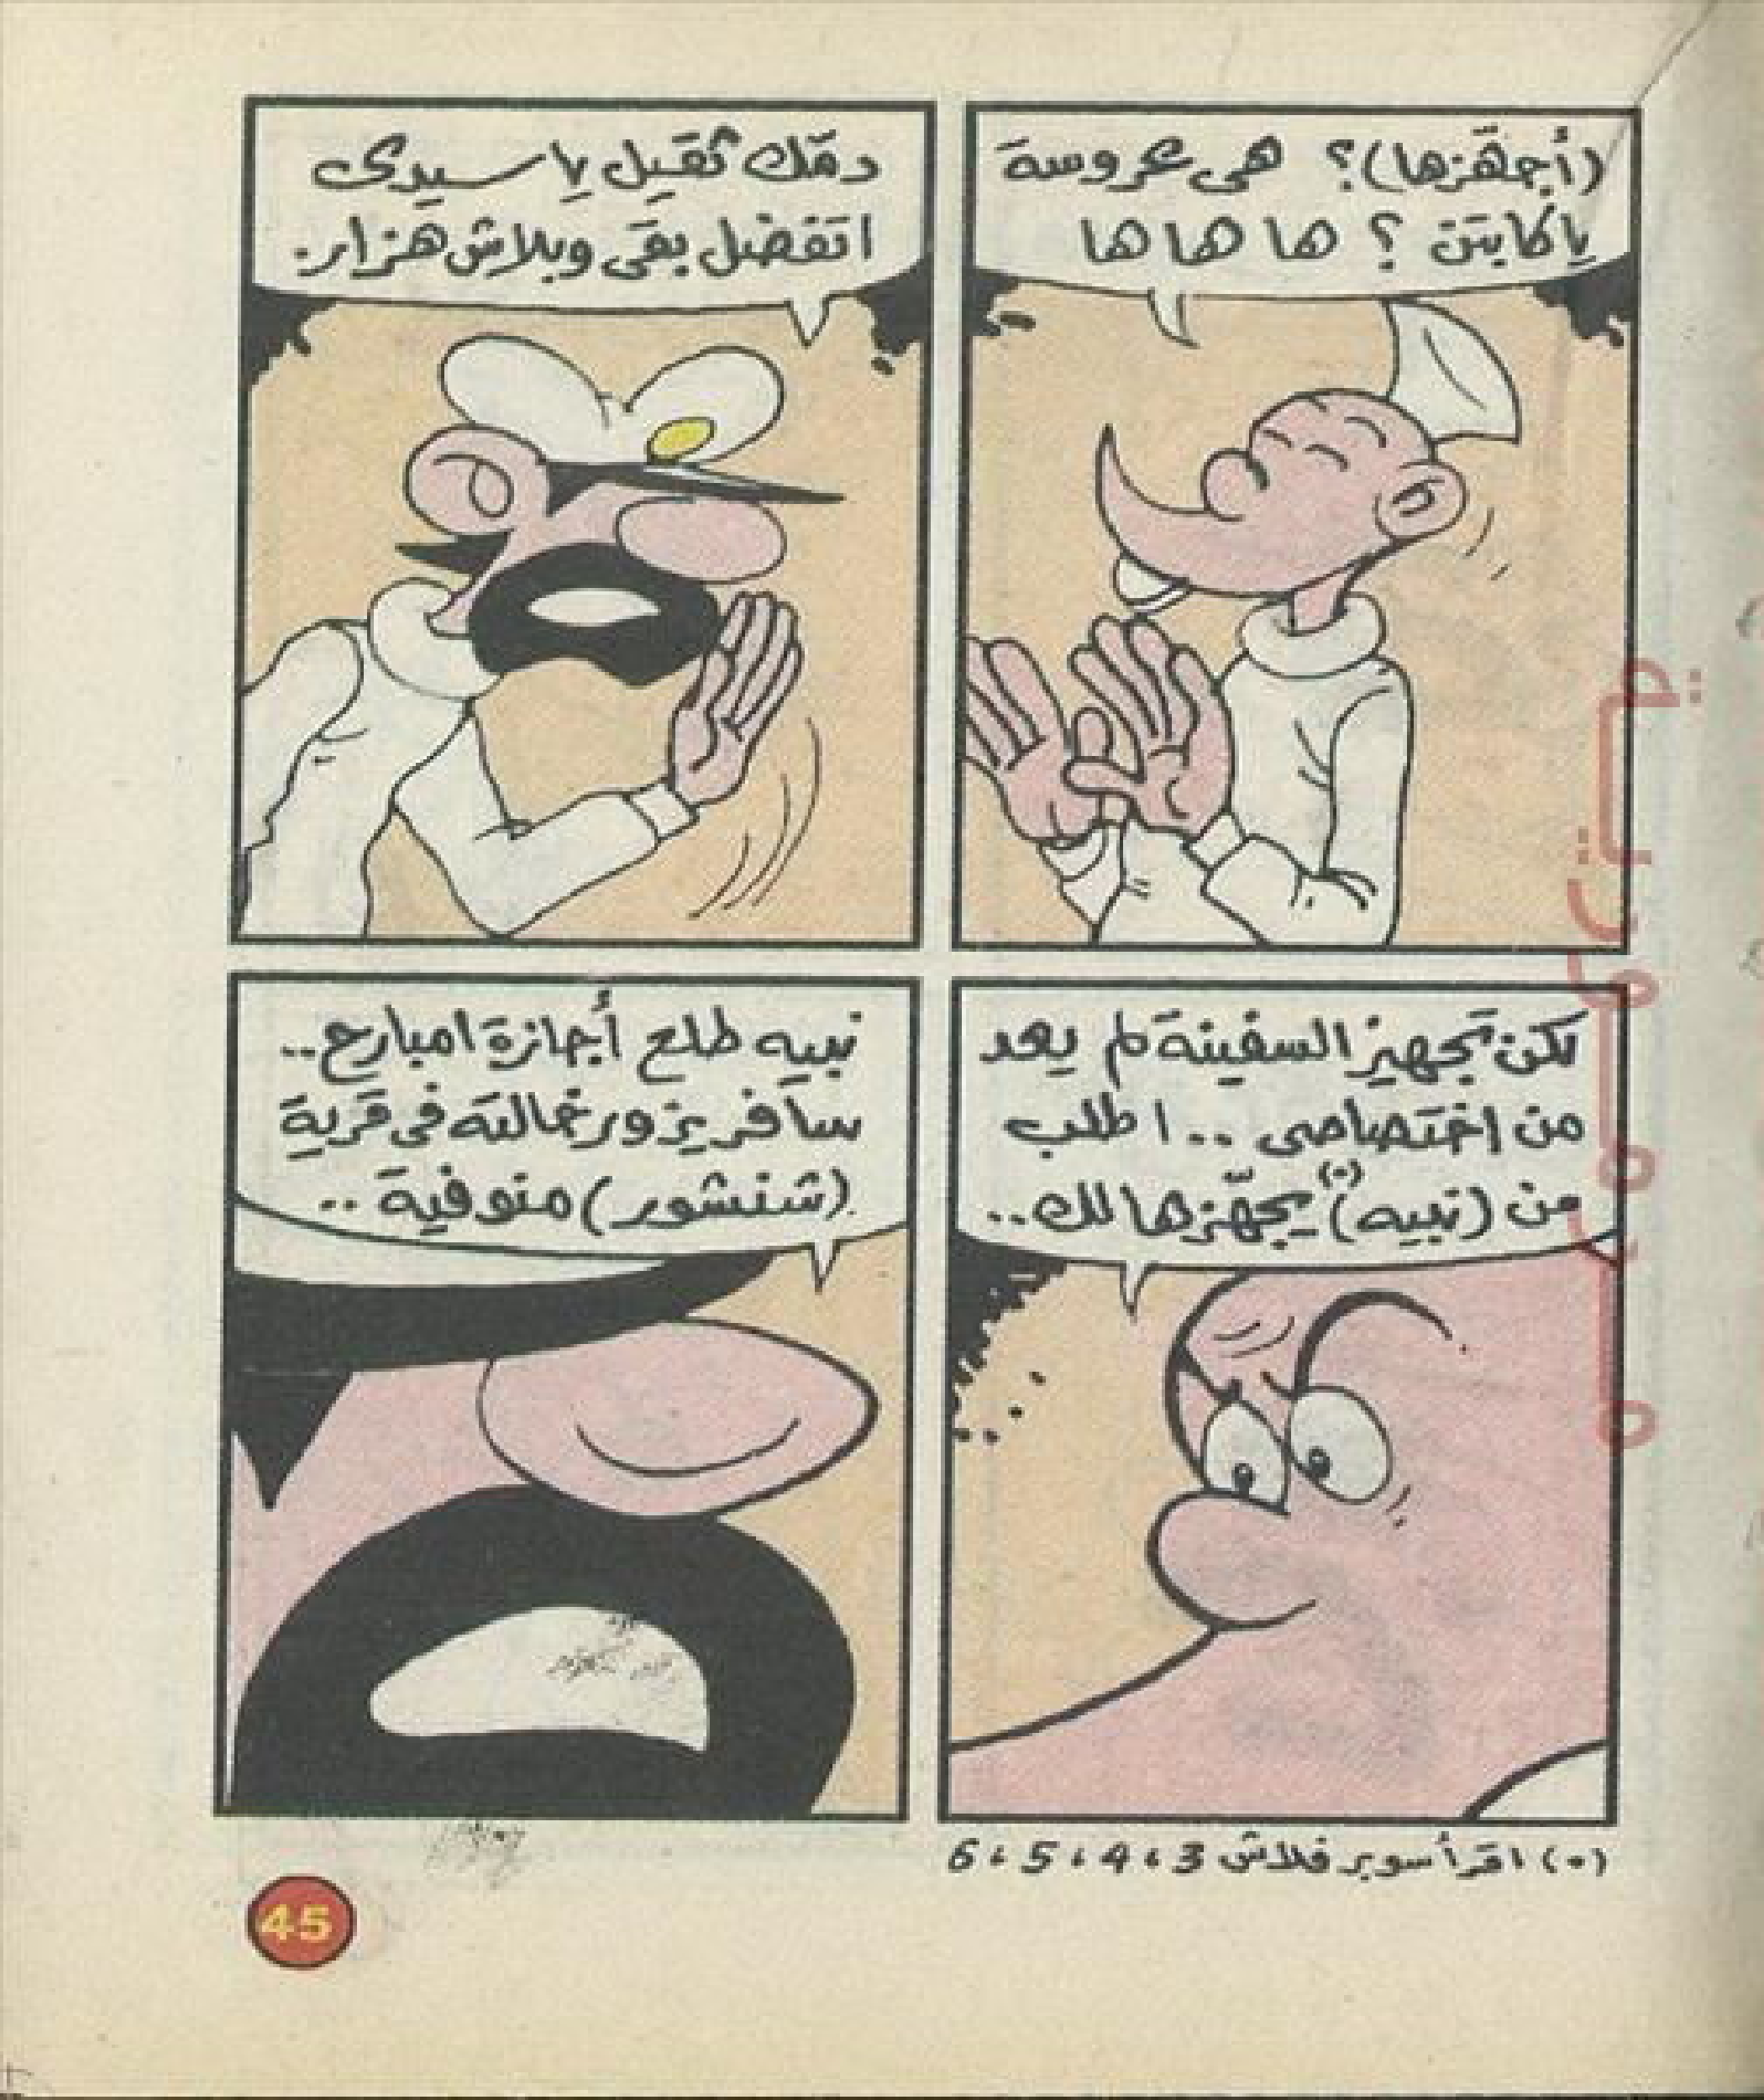 (أجهّزها)؟ هى عروسة
يا كابتن ؟ ها ها ها
دمّك ثقيل يا سيدى
اتفضل بقى وبلاش هزار.
لكن تجهيز السفينة لم يعد
من اختصاصى .. اطلب
من (نبيه)(٠) يجهّزها لك..
نبيه طلع أجازة امبارح..
سافر يزور خالته فى قرية
(شنشور) منوفية ..
(٠) اقرأ سوبر فلاش 3 ، 4 ، 5 ، 6
45